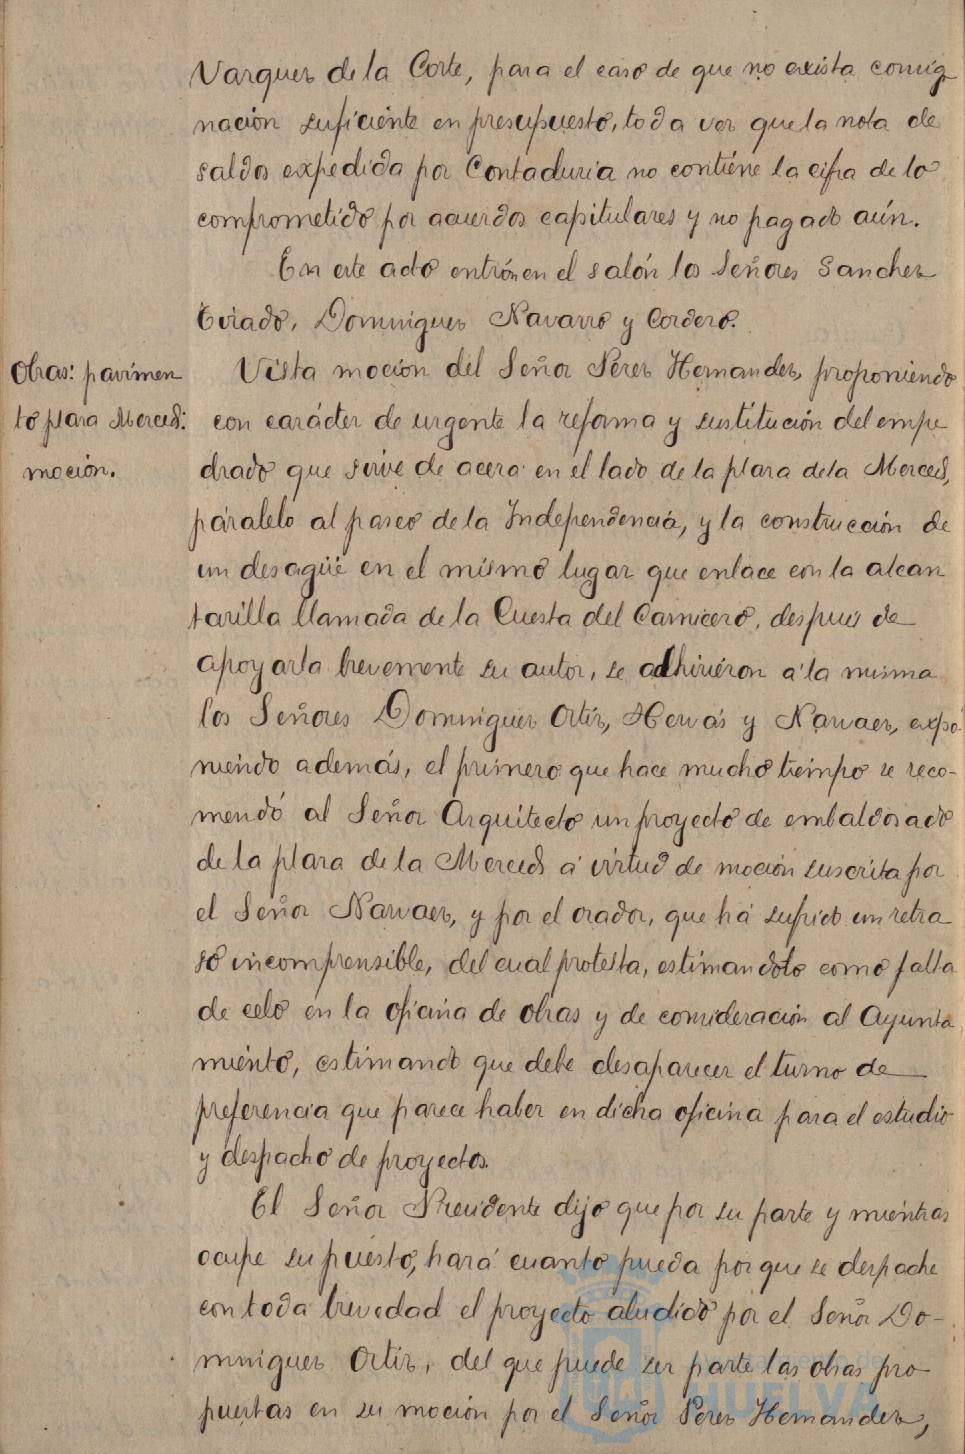 Vazquez de la Corte, para el caso de que no exista consig
nación suficiente en presupuesto, toda vez que la nota de
saldos expedida por Contaduria no contiene la cifra de lo
comprometido por acuerdos capitulares y no pagado aún.
En este acto entrón en el salón los Señores Sanchez
Tirado, Dominguez Navarro y Cordero.
Obras: pavimen
to plaza Merced:
moción.
Vista moción del Señor Perez Hernandez, proponiendo
con carácter de urgente la reforma y sustitución del empe
drado que sirve de acera en el lado de la plaza de la Merced,
páralelo al paseo de la Independencia, y la construcción de
un desagüe en el mismo lugar que enlace con la alcan
tarilla llamada de la Cuesta del Carnicero, despues de
apoyarla brevemente su autor, se adhirieron á la misma
los Señores Dominguez Ortiz, Hervás y Narvaez, expo
niendo además, el primero que hace mucho tiempo se reco-
mendó al Señor Arquitecto un proyecto de embaldosado
de la plaza de la Merced á virtud de moción suscrita por
el Señor Narvaez, y por el orador, que há sufrido un retra
so incomprensible, del cual protesta, estimandolo como falta
de celo en la oficina de obras y de consideración al Ayunta
miento, estimando que debe desaparecer el turno de
preferencia que parece haber en dicha oficina para el estudio
y despacho de proyectos.
El Señor Presidente dijo que por su parte y mientras
ocupe su puesto, hará cuanto pueda por que se despache
con toda brevedad el proyecto aludido por el Señor Do-
minguez Ortiz, del que puede ser parte las obras pro
puestas en su moción por el Señor Perez Hernandez,
Ayuntamiento de
HUELVA